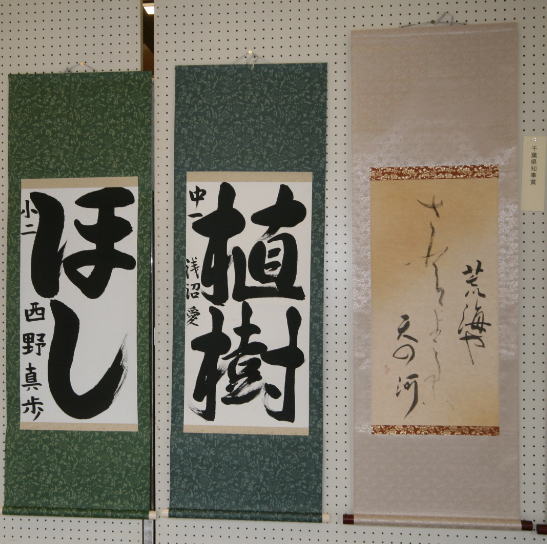 ほし
小二
西野真歩
植樹
中一
浅沼愛
荒海や
天の河
千葉県知事賞